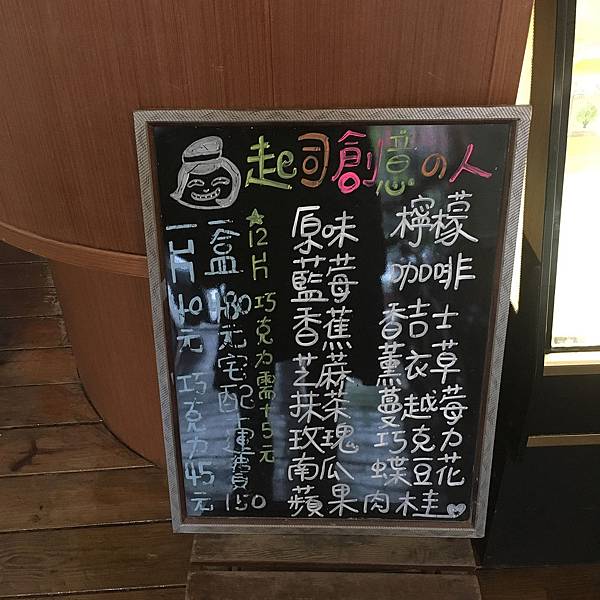 起司創意の人
檸檬
咖啡
香吉士
薰衣草
蔓越莓
巧克力
蝶豆花
肉桂
原味
藍莓
香蕉
芝蔴
抹茶
玫瑰
南瓜
蘋果
★12片 巧克力需+5元
一盒480元宅配+運費150
一片40元 巧克力45元